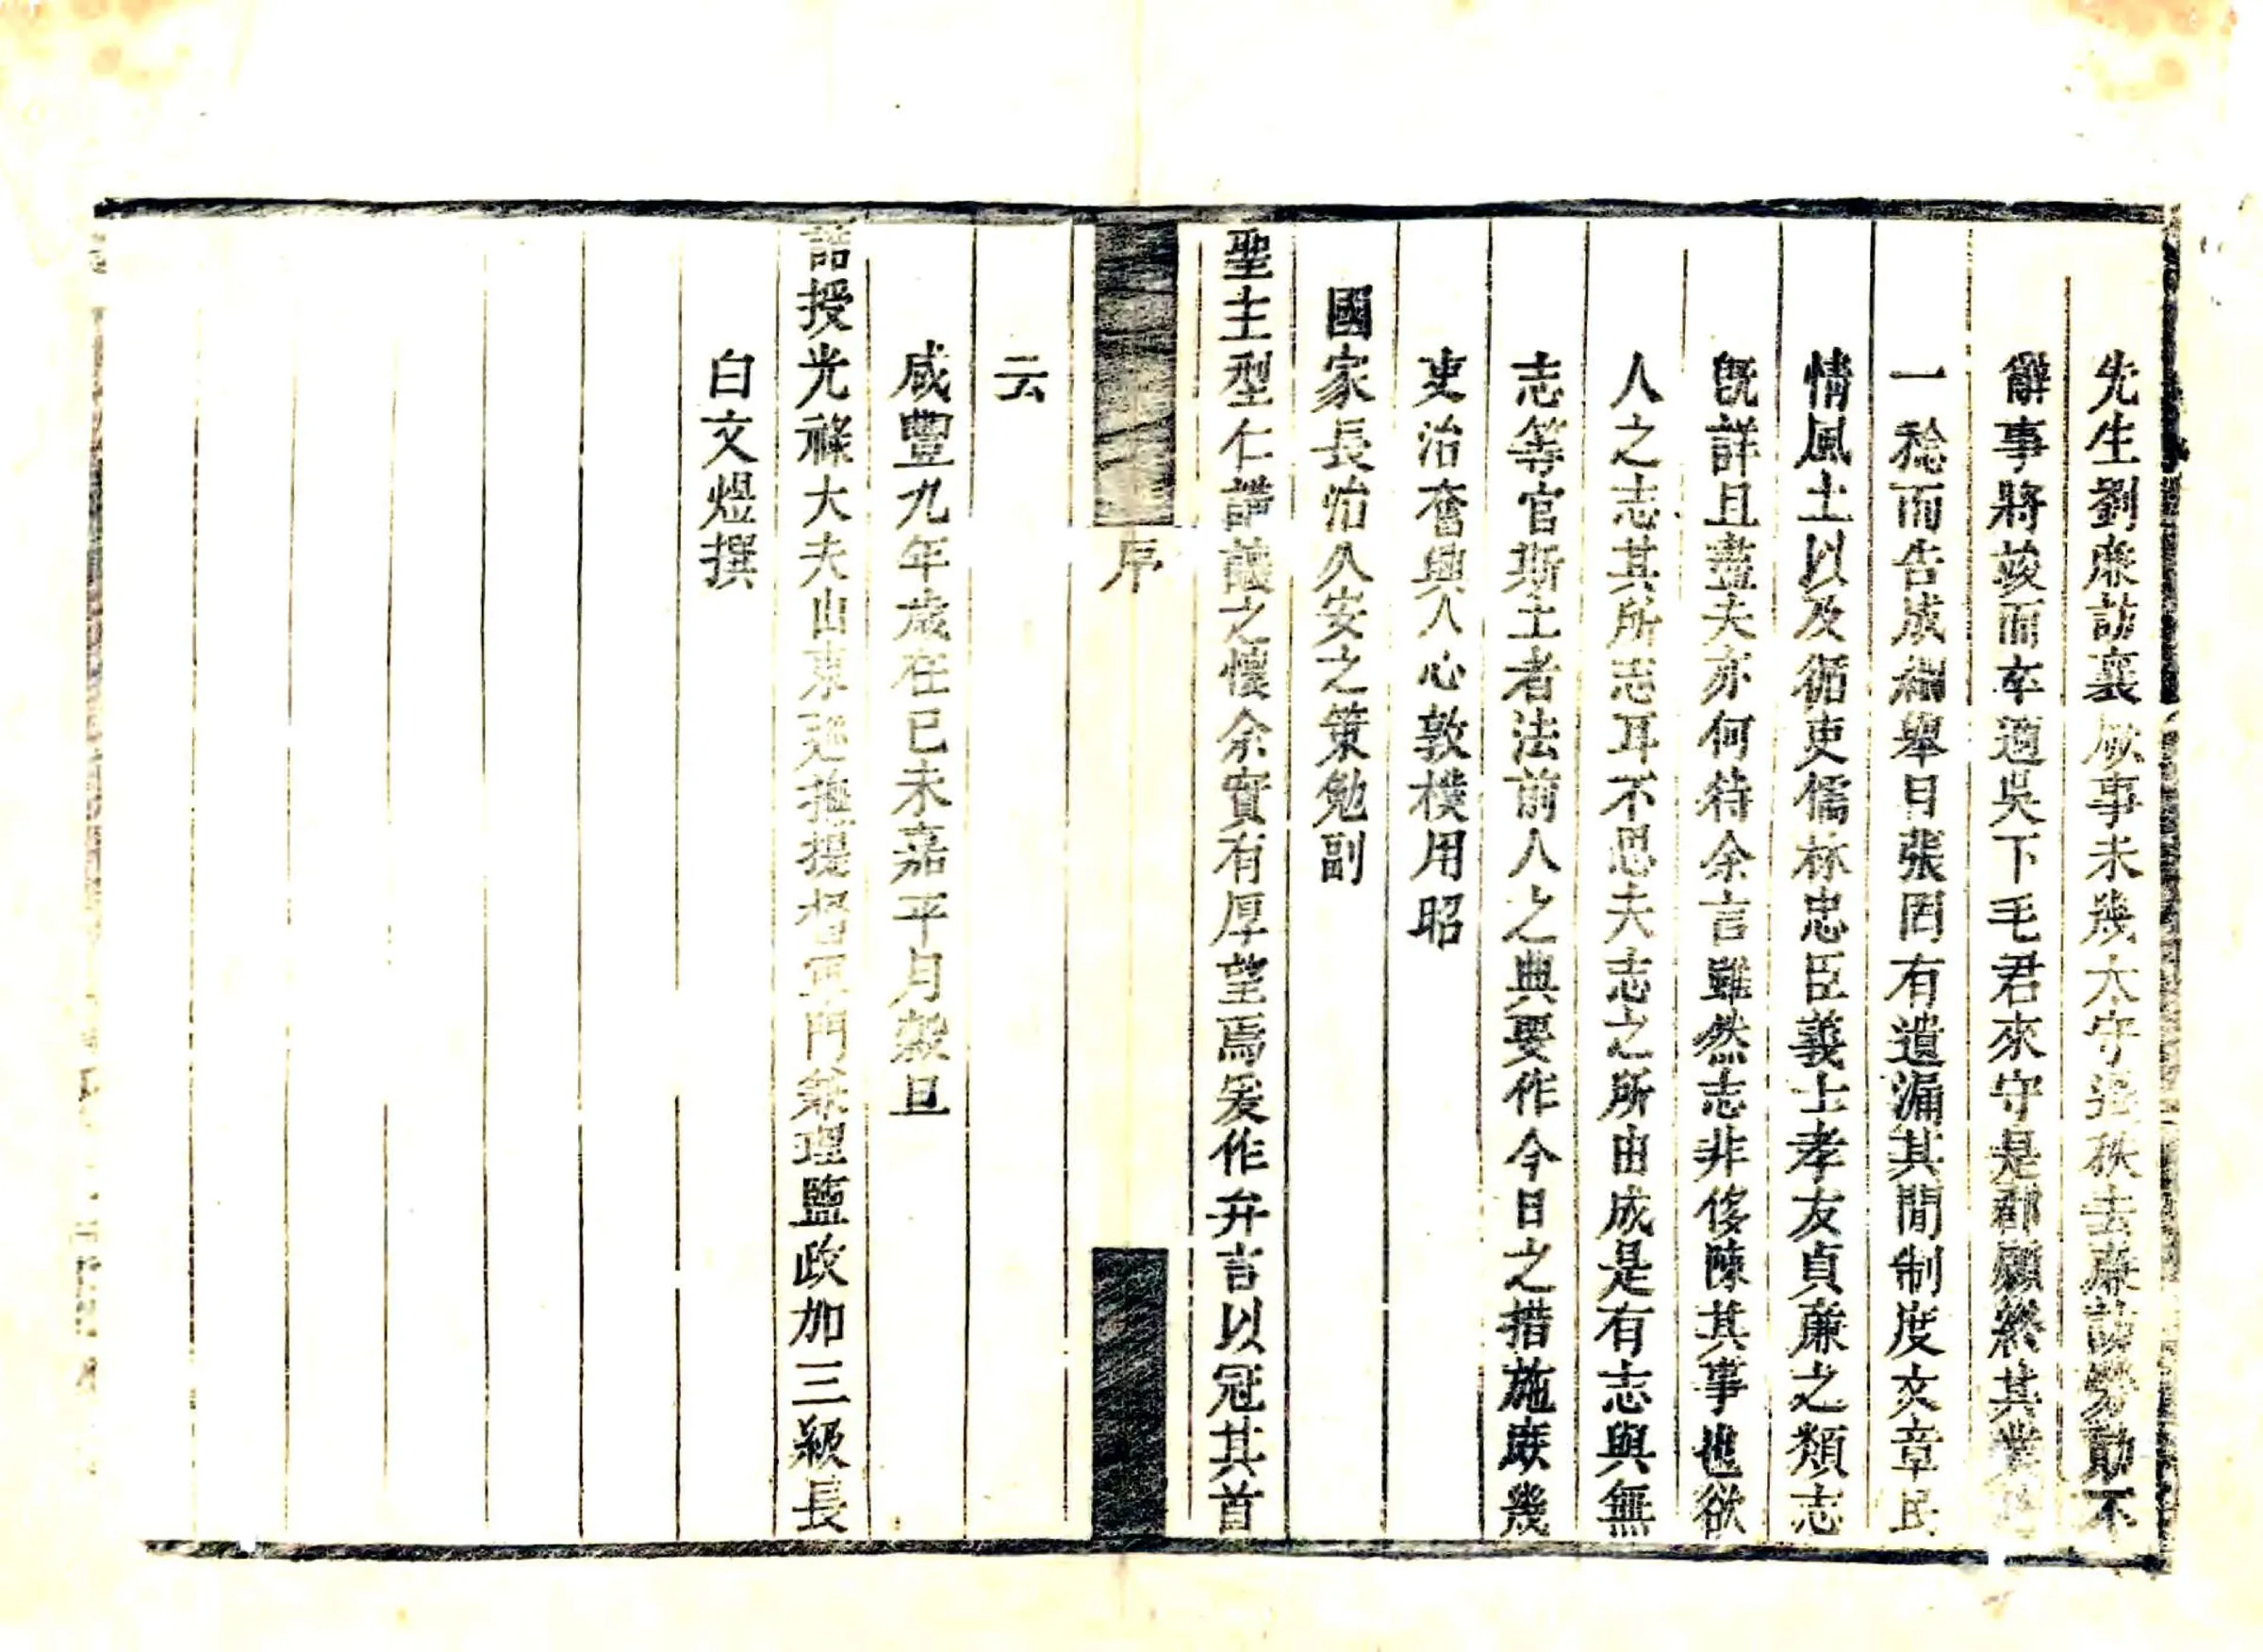 先生劉廉訪襄厥事未幾太守遷秩去廉訪勞勩不
辭事將竣而卒適吳下毛君來守是郡願終其業
一稔而告成綱舉目張罔有遺漏其間制度文章民
情風土以及循吏儒林忠臣義士孝友貞廉之類志
旣詳且盡夫亦何待余言雖然志非侈陳其事也欲
人之志其所志耳不思夫志之所由成是有志與無
志等官斯土者法前人之典要作今日之措施庶幾
吏治奮興人心敦樸用昭
國家長治久安之策勉副
聖主型仁講讓之懷余實有厚望焉爰作弁言以冠其首
序
云
咸豐九年歲在已未嘉平月穀旦
誥授光祿大夫山東巡撫提督軍門兼理鹽政加三級長
白文煜撰